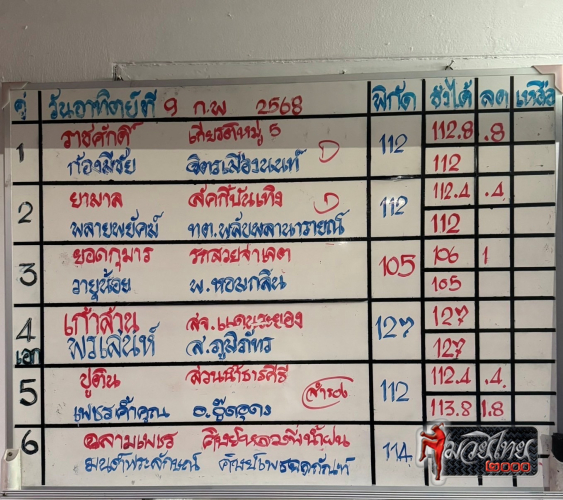 คู่ วันอาทิตย์ที่ 9 ก.พ 2568 พิกัด ชั่งได้ ลด เหลือ
1 ราชศักดิ์ เกียรติหมู่ 5 112 112.8 .8
ก้องมีชัย จิตรเมืองนนท์ 112
2 ยามาล สักกี่บันเทิง 112 112.4 .4
พลายพยัคฆ์ ทต.พลับพลานารายณ์ 112
3 ยอดกุมาร 105 106 1
วายุน้อย พ.หอมกลิ่น 105
4 เก้าล้าน สจ. 127 127
เอก พรเสน่ห์ ส.ภูมิภัทร 127
5 ปูติน สวนน้ำธารคีรี 112 112.4 .4
เพชรเจ้าคุณ สำรอง 113.8 1.8
6 ฉลามเพชร ศิษย์หลวงพี่น้ำฝน 114
มนต์พระลักษณ์
มวยไทย
๒๐๐๐